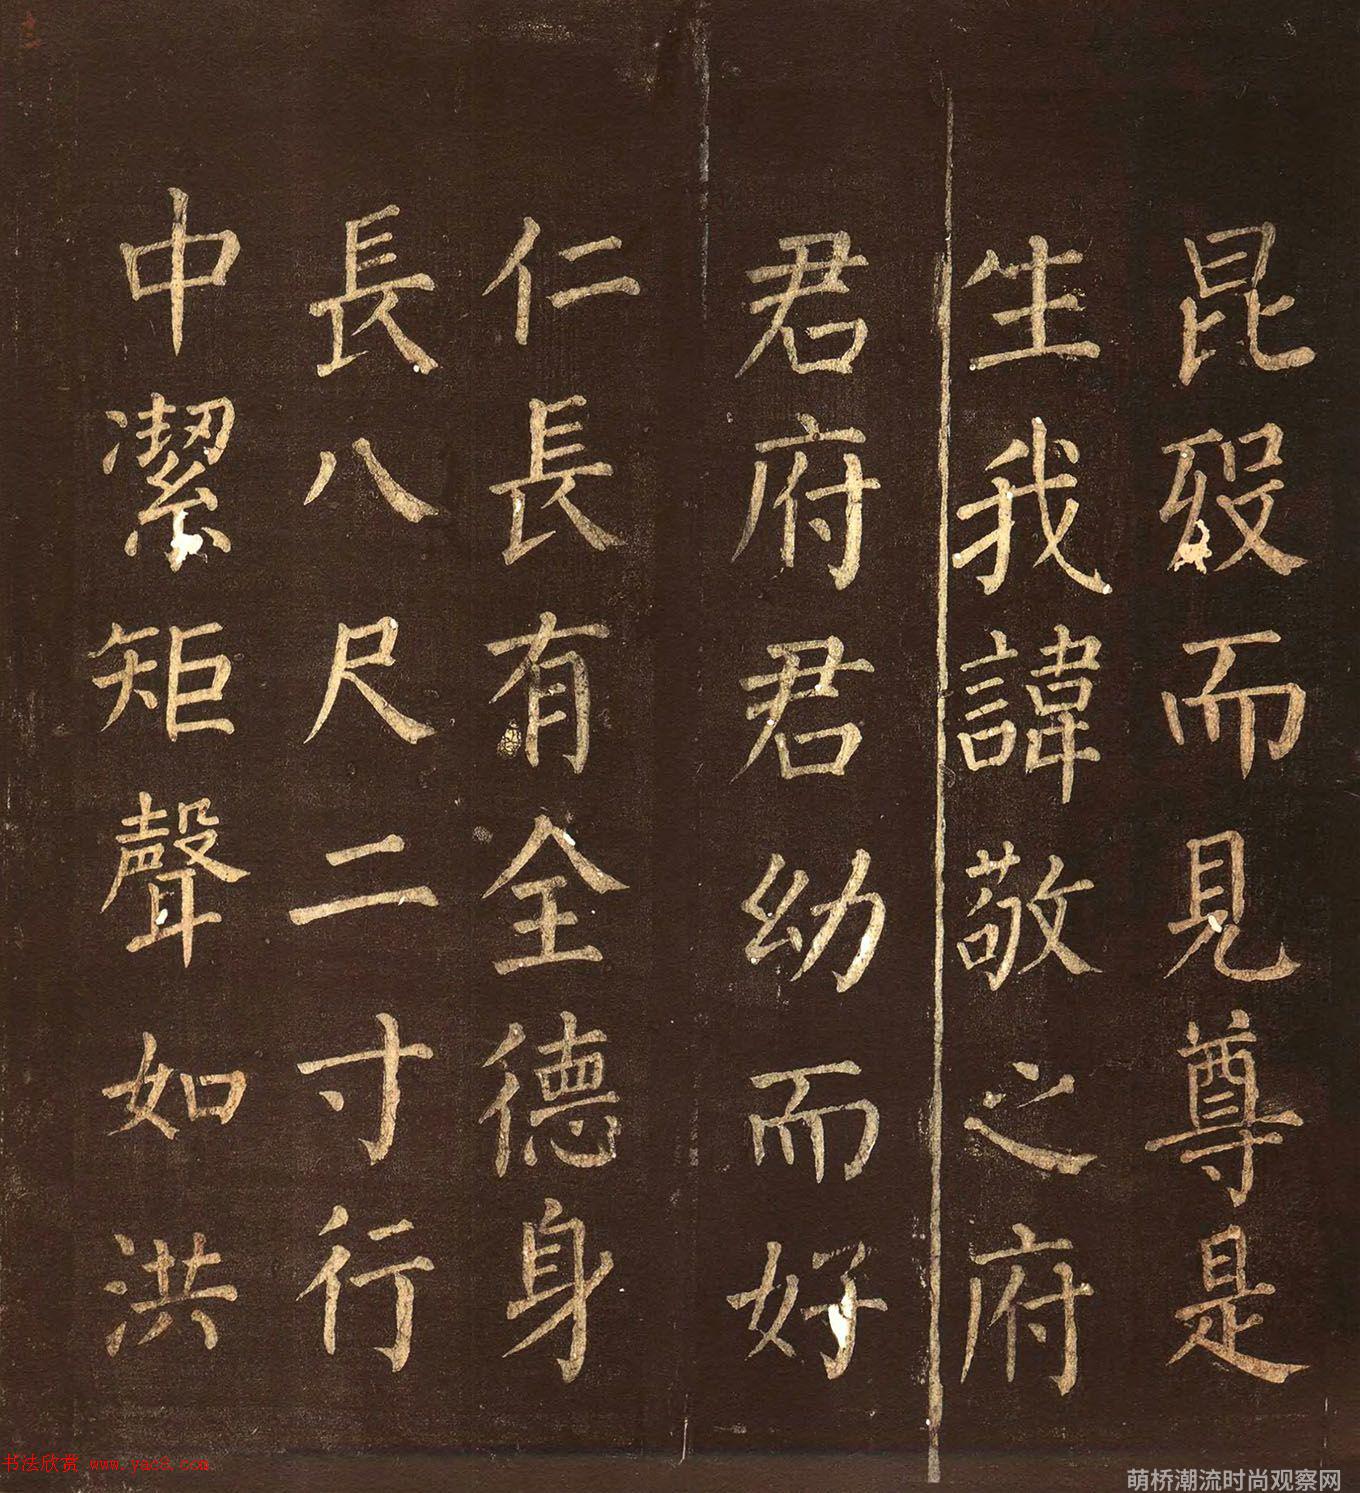 昆殁而見尊是
生我諱敬之府
君府君幼而好
仁長有全德身
長八尺二寸行
中潔矩聲如洪
书法欣赏 www.yac8.com
萌桥潮流时尚观察网